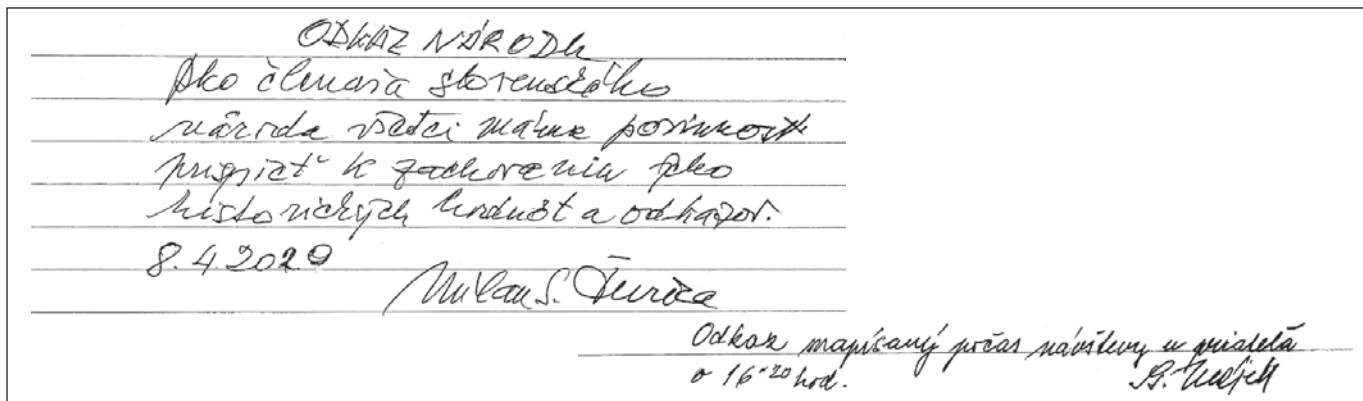 ODKAZ NÁRODU
Ako členovia slovenského
národa všetci máme povinnosť
prispieť k zachovaniu jeho
historických hodnôt a odkazov.
8.4.2020
Milan S. Ďurica
Odkaz napísaný počas návštevy u priateľa
o 16·20 hod.